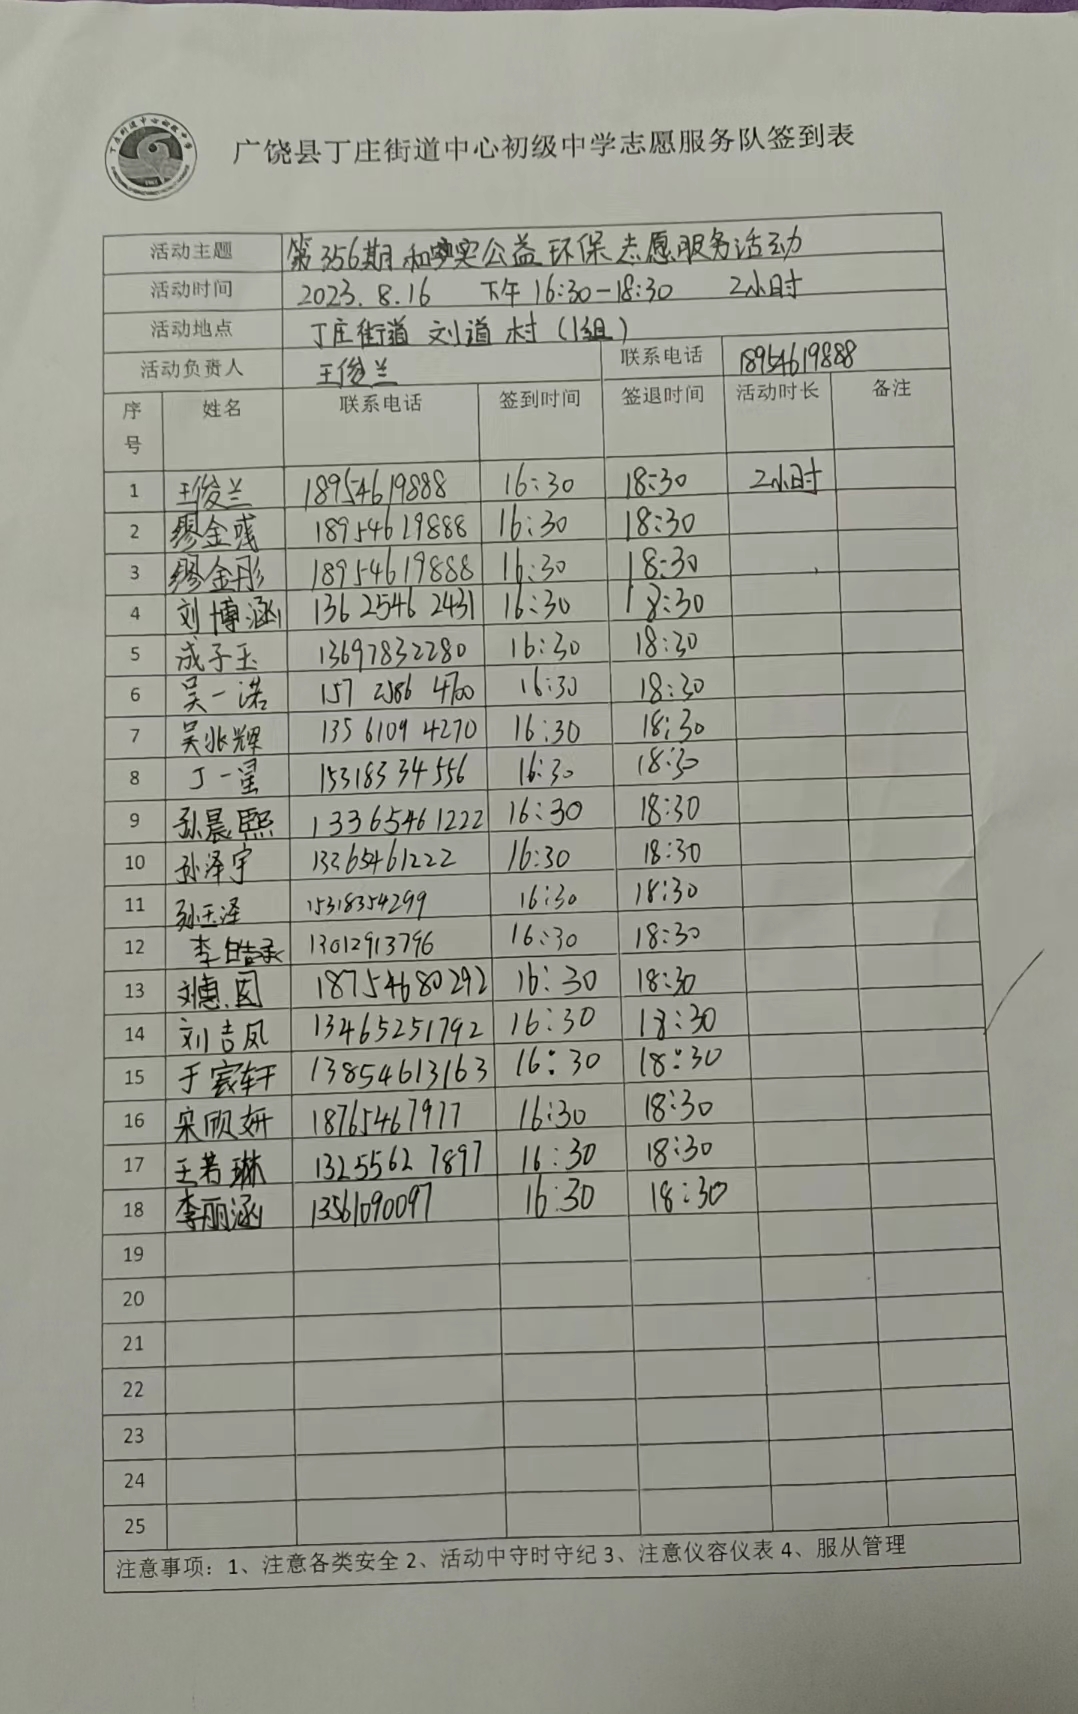 广饶县丁庄街道中心初级中学志愿服务队签到表
活动主题 第356期和实公益环保志愿服务活动
活动时间 2023.8.16 下午16:30-18:30 2小时
活动地点 丁庄街道 刘道村(1组)
活动负责人 王俊兰 联系电话 18954619888
序号 姓名 联系电话 签到时间 签退时间 活动时长 备注
1 王俊兰 18954619888 16:30 18:30 2小时
2 缪金彧 18954619888 16:30 18:30
3 缪金彤 18954619888 16:30 18:30
4 刘博涵 136 2546 2431 16:30 18:30
5 成子玉 13697832280 16:30 18:30
6 吴一诺 157 2586 4700 16:30 18:30
7 吴兆辉 135 6109 4270 16:30 18:30
8 丁一星 15318334556 16:30 18:30
9 孙晨熙 13365461222 16:30 18:30
10 孙泽宇 13365461222 16:30 18:30
11 孙玉泽 15318354299 16:30 18:30
12 李皓录 13012913796 16:30 18:30
13 刘惠图 18754680292 16:30 18:30
14 刘吉凤 13465251792 16:30 18:30
15 于宸轩 13854613163 16:30 18:30
16 宋欣妍 18765467977 16:30 18:30
17 王若琳 1325562 7897 16:30 18:30
18 李丽涵 13561090097 16:30 18:30
19
20
21
22
23
24
25
注意事项：1、注意各类安全 2、活动中守时守纪 3、注意仪容仪表 4、服从管理